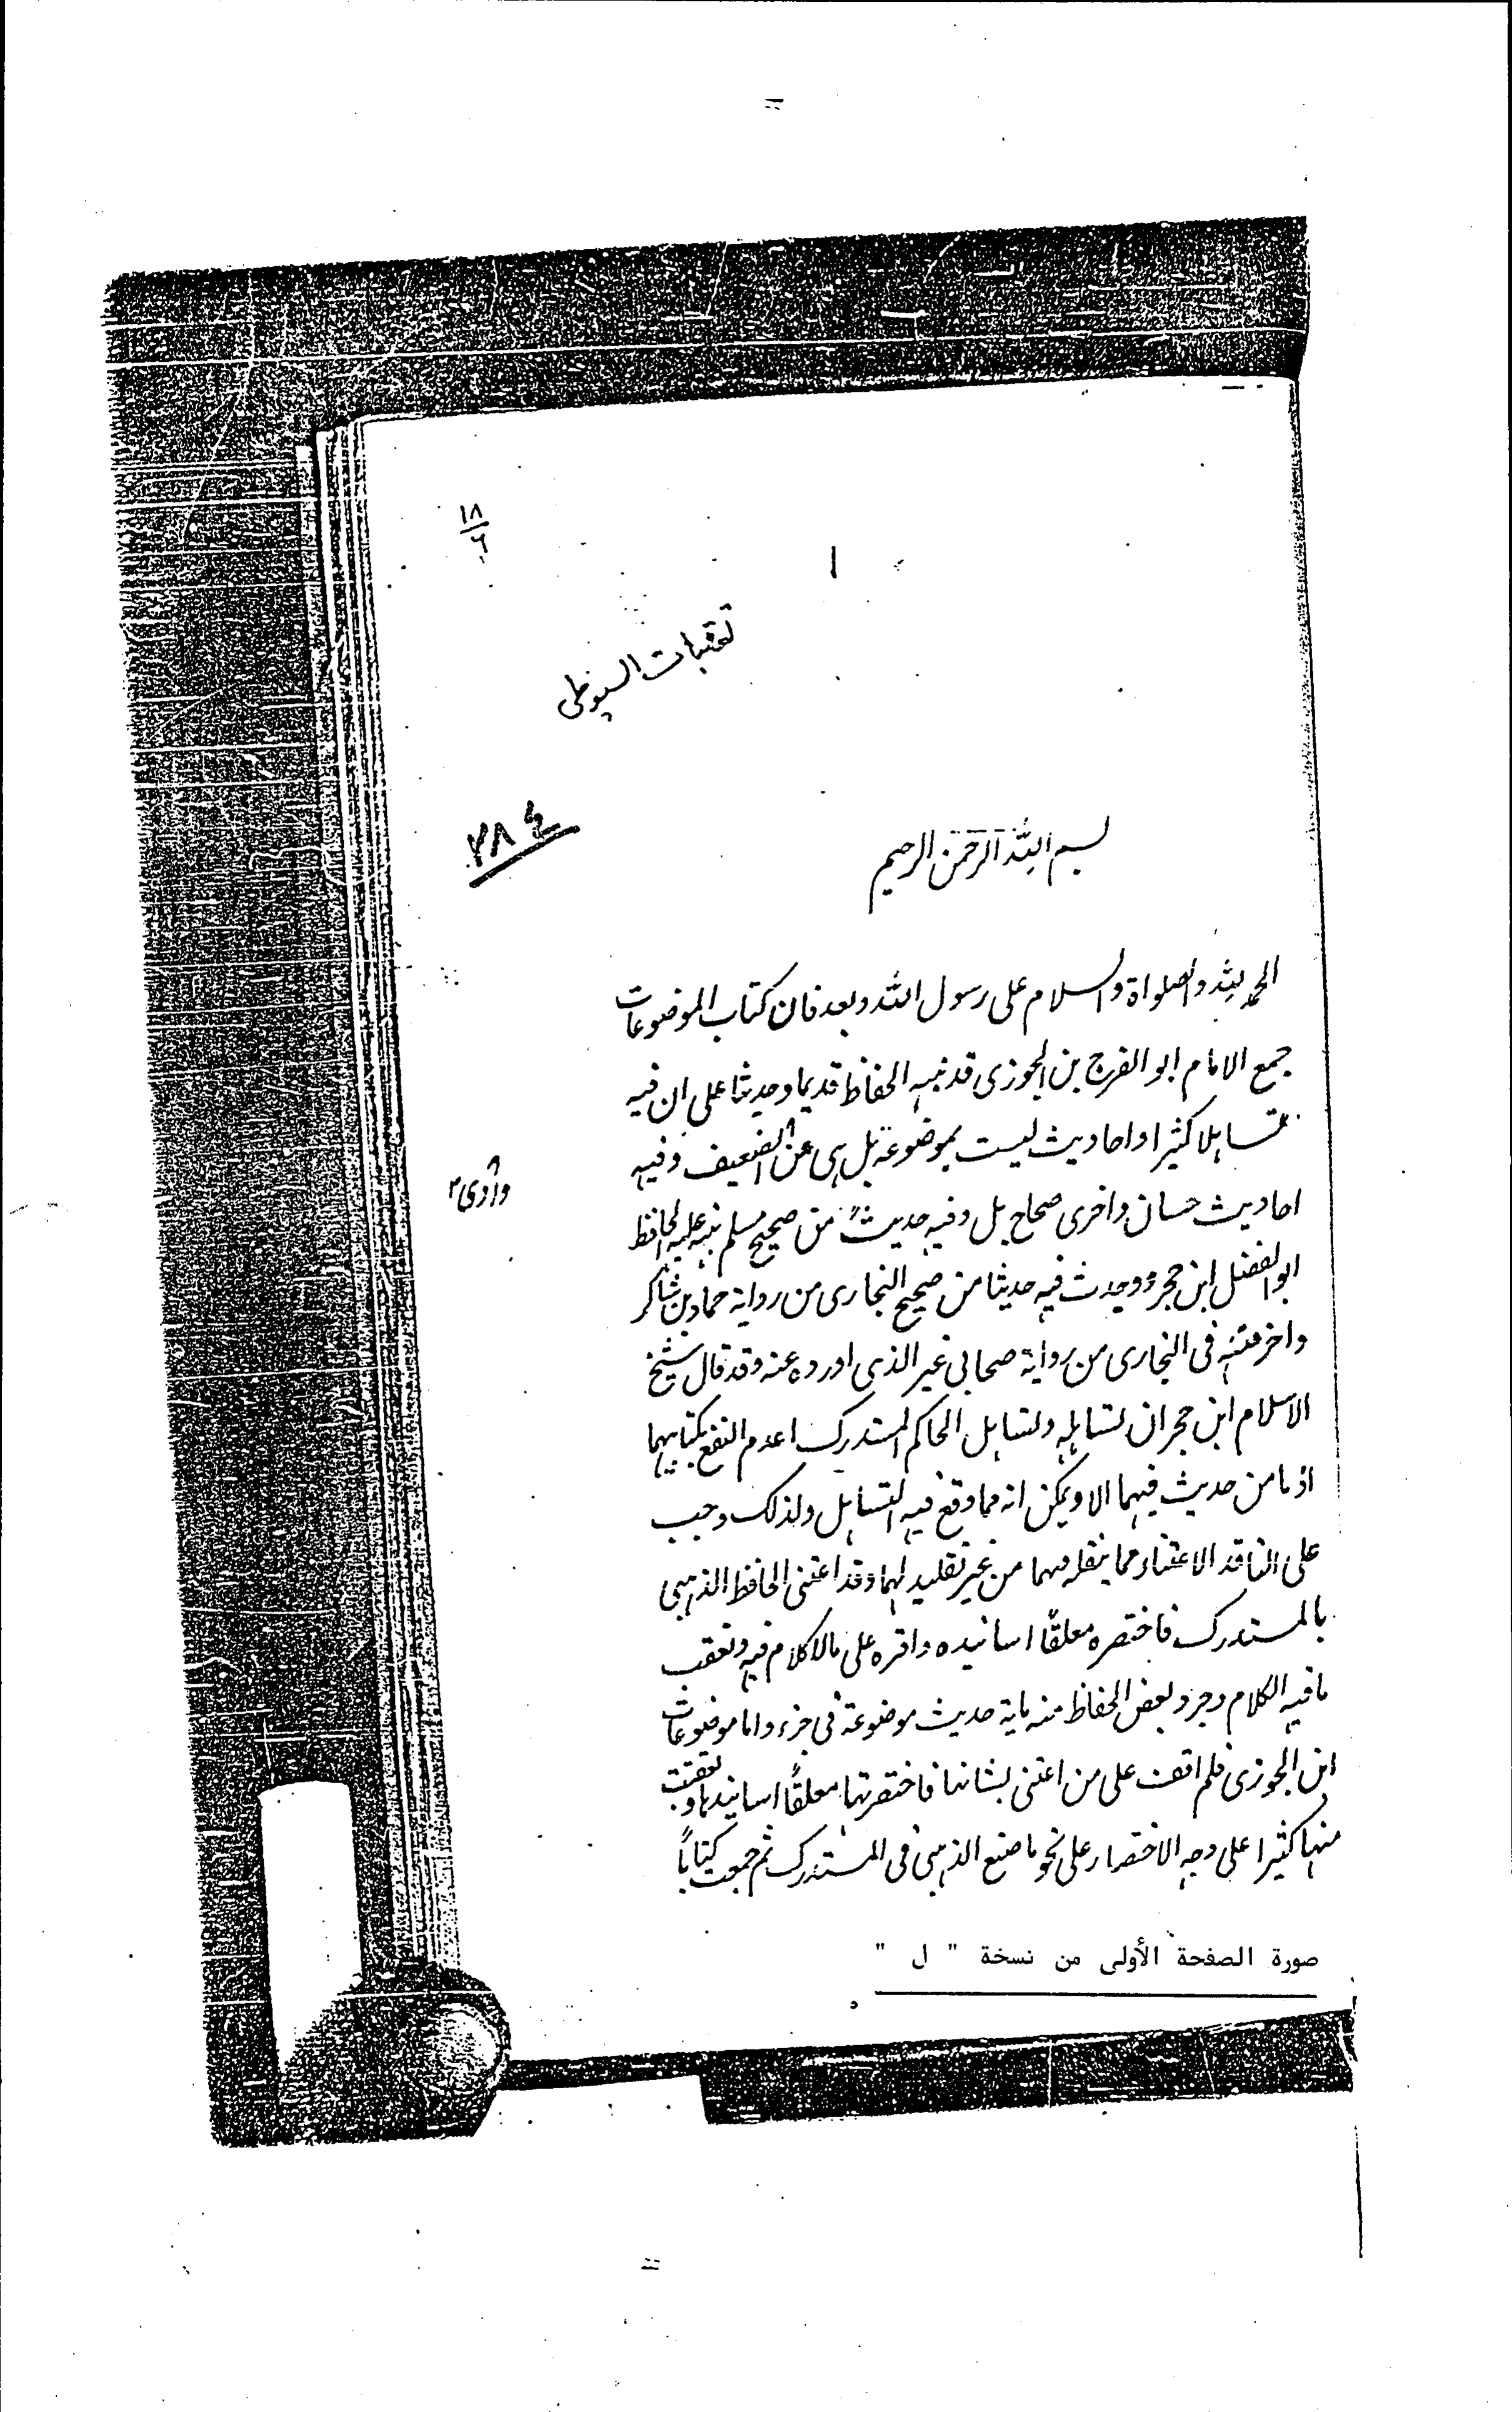 ١٨
٦
١
تعقبات السيوطى
٣٨٤
بسم الله الرحمن الرحيم
الحمد لله والصلواة والسلام على رسول الله وبعد فان كتاب الموضوعات
جمع الامام ابو الفرج بن الجوزى قد نبه الحفاظ قديما وحديثا على ان فيه
تساهلا كثيرا واحاديث ليست بموضوعة بل هى عن الضعيف وفيه
احاديث حسان واخرى صحاح بل وفيه حديثٌ من صحيح مسلم نبه عليه الحافظ
ابو الفضل ابن حجر ووجدت فيه حديثا من صحيح البخارى من رواية حماد بن شاكر
واخر متنه فى البخارى من رواية صحابى غير الذى اورده عنه وقد قال شيخ
الاسلام ابن حجر ان تساهله وتساهل الحاكم المستدرك اعدم النفع بكتابيهما
اذ ما من حديث فيهما الا ويمكن انه مما وقع فيه التساهل ولذلك وجب
على الناقد الاعتناء مما ينقله منهما من غير تقليد لهما وقد اعتنى الحافظ الذهبى
بالمستدرك فاختصره معلقًا اسانيده واقره على مالا كلام فيه وتعقب
ما فيه الكلام وجرد بعض الحفاظ منه ماية حديث موضوعة فى جزء واما موضوعات
ابن الجوزى فلم اقف على من اعتنى بشانها فاختصرتها معلقًا اسانيدها وتعقبت
منها كثيرا على وجه الاختصار على نحو ما صنع الذهبى فى المستدرك ثم جمعت كتابًا
صورة الصفحة الأولى من نسخة " ل "